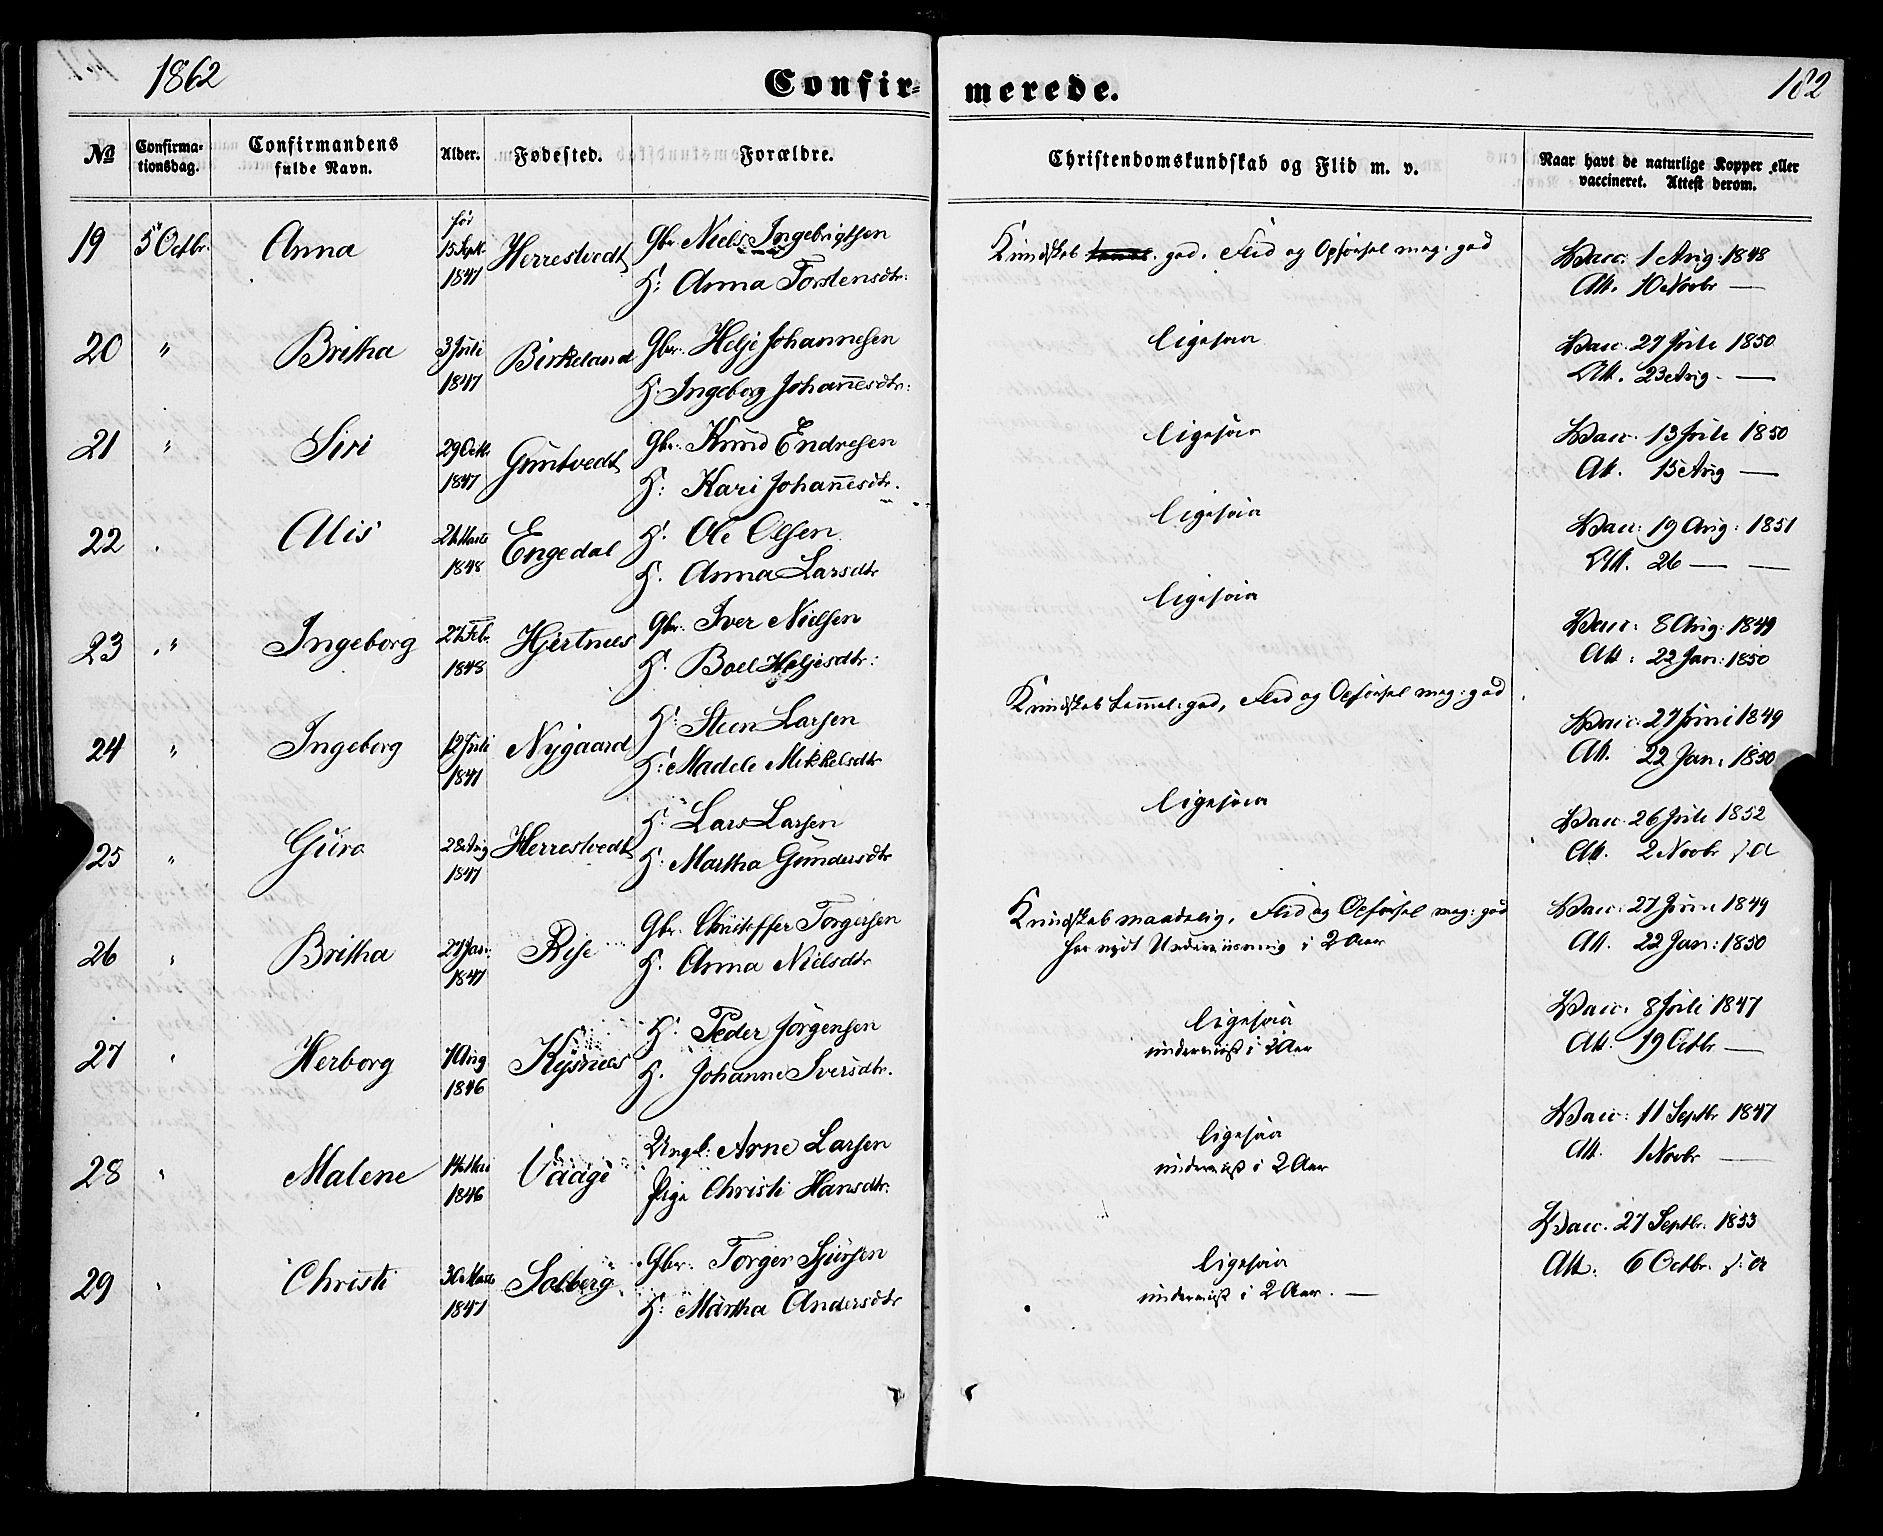 1862
Confir=
merede.
182
No
Confirma=
tionsdag.
Confirmandens
fulde Navn.
Alder.
Fødested.
Forældre.
Christendomskundskab og Flid m. v.
Naar havt de naturlige Kopper eller
vaccineret. Attest derom.
19 5 Octbr. Anna før 15 Sept 1847 Herrestvedt Gbr. Niels Ingebrigtsen
H: Anna Torstensdtr:
Kundskab god. Flid og Opførsel meg: god
Vacc: 1 Aug: 1848
Att. 10 Novbr —
20 " Britha 3 Juli 1847 Birkeland Gbr. Helje Johannesen
H. Ingeborg Johannesdtr:
ligesaa
Vacc. 27 Juli 1850
Att. 23 Aug. —
21 " Siri 29 Octbr 1847 Guntvedt Gbr. Knud Endresen
H: Kari Johannesdtr.
ligesaa
Vacc. 13 Juli 1850
Att. 15 Aug —
22 . Alis 1848 Engedal H. Ole Olsen
H. Anna Larsdtr
ligesaa
Vacc: 19 Aug: 1851
Att. 26 — —
23 " Ingeborg 27 Feb. 1848 Hjertnæs Gbr. Iver Nielsen
H. Boel Heljesdtr:
ligesaa
Vacc: 8 Aug: 1849
Att: 22 Jan: 1850
24 " Ingeborg 12 Juli 1847 Nygaard H: Steen Larsen
H: Madele Mikkelsdtr
Kundskab temmel: god, Flid og Opførsel meg: god
Vacc: 27 Juni 1849
Att. 22 Jan. 1850
25 " Guro 28 Aug 1847 Herrestvedt H. Lars Larsen
H. Martha Gundersdtr
ligesaa
Vacc. 26 Juli 1852
Att. 2 Novbr s. A
26 " Britha 27 Jan: 1847 Rise Gbr. Christoffer Torgersen
H. Anna Nielsdtr
Kundskab maadelig, Flid og Opførsel meg: god
har nydt Underviisning i 2 Aar
Vacc: 27 Juni 1849
Att. 22 Jan: 1850
27 " Herborg 7 Aug 1846 Kysnæs H. Peder Jørgensen
H. Johanne Iversdtr.
ligesaa
underviist i 2 Aar
Vacc. 8 Juli 1847
Att. 19 Octbr —
28 " Malene 14 Mai 1846 Vaage Ungk: Arne Larsen
Pige Christi Hansdtr:
ligesaa
underviist i 2 Aar
Vacc: 11 Septbr 1847
Att. 1 Novbr —
29 " Christi 30 Marts 1847 Solberg Gbr: Torger Sjursen
H: Martha Andersdtr
ligesaa
underviist i 2 Aar. —
Vacc. 27 Septbr. 1853
Att: 6 Octbr. s: A